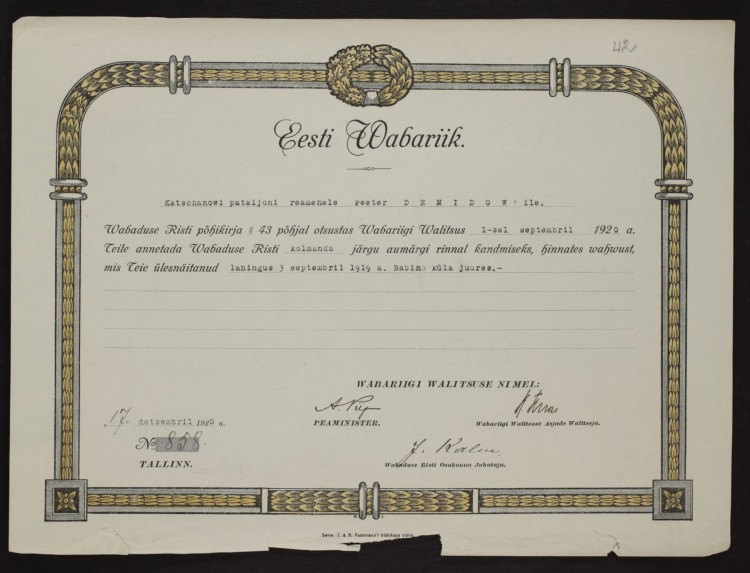 42
Eesti Wabariik.
Katschanowi pataljoni reamehele Peeter DEMIDOW'ile.
Wabaduse Risti põhikirja § 43 põhjal otsustas Wabariigi Walitsus 1-sel septembril 1920 a.
Teile annetada Wabaduse Risti kolmanda järgu aumärgi rinnal kandmiseks, hinnates wahwust,
mis Teie ülesnäitanud lahingus 3 septembril 1919 a. Babino küla juures.-
WABARIIGI WALITSUSE NIMEL:
A. Piip
17. detsembril 1920 a.
PEAMINISTER.
Wabariigi Walitsuse Asjade Walitseja.
№ 858
TALLINN.
Wabaduse Risti Osakonna Juhataja.